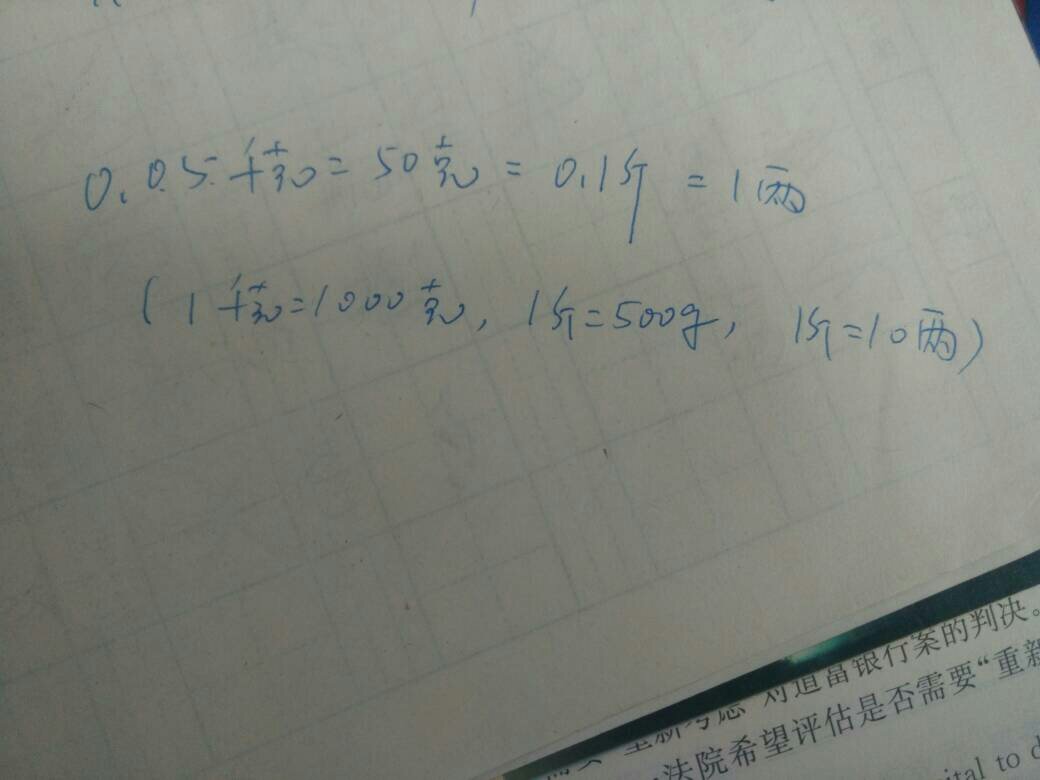 0.05千克=50克=0.1斤=1两
(1千克=1000克, 1斤=500g, 1斤=10两)
对道富银行案的判决。
法院希望评估是否需要“重新
ital to d